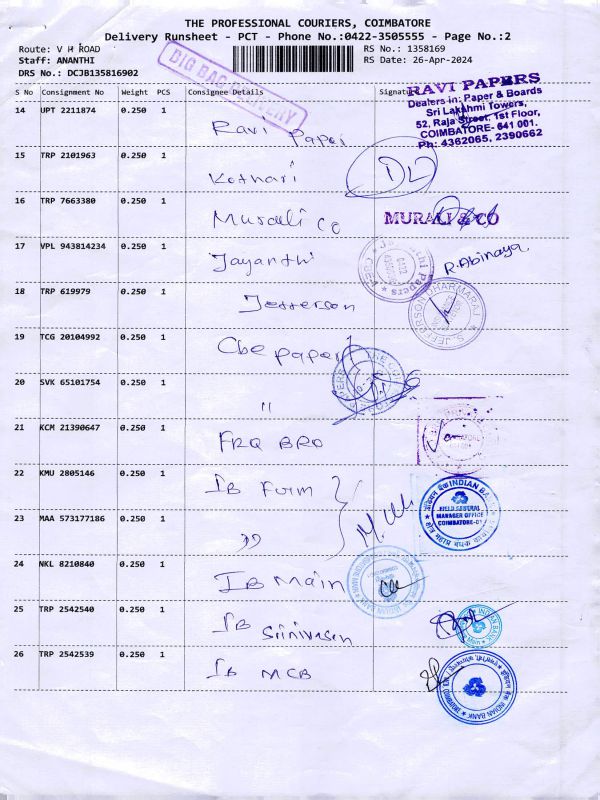 THE PROFESSIONAL COURIERS, COIMBATORE
Delivery Runsheet - PCT - Phone No.:0422-3505555 - Page No.:2
Route: V H ROAD RS No.: 1358169
Staff: ANANTHI RS Date: 26-Apr-2024
DRS No.: DCJB135816902
BIG BAG DELIVERY
S No Consignment No Weight PCS Consignee Details Signature
RAVI PAPERS
Dealers in: Paper & Boards
Sri Lakshmi Towers,
52, Raja Street, 1st Floor,
COIMBATORE- 641 001.
Ph: 4362065, 2390662
14 UPT 2211874 0.250 1 Ravi Paper
15 TRP 2101963 0.250 1 Kothari
16 TRP 7663380 0.250 1 Murali co MURALI & CO
17 VPL 943814234 0.250 1 Jayanthi R. Abinaya
18 TRP 619979 0.250 1 Jefferson
S. JEFFERSON DHARMARAJ
19 TCG 20104992 0.250 1 Cbe paper
20 SVK 65101754 0.250 1 "
21 KCM 21390647 0.250 1 FRQ BRO
22 KMU 2805146 0.250 1 IB Form
INDIAN BANK
FIELD GENERAL
MANAGER OFFICE
COIMBATORE-01
23 MAA 573177186 0.250 1 "
24 NKL 8210840 0.250 1 IB Main
INDIAN BANK
25 TRP 2542540 0.250 1 IB Srinivasan
INDIAN BANK
26 TRP 2542539 0.250 1 IB MCB
INDIAN BANK